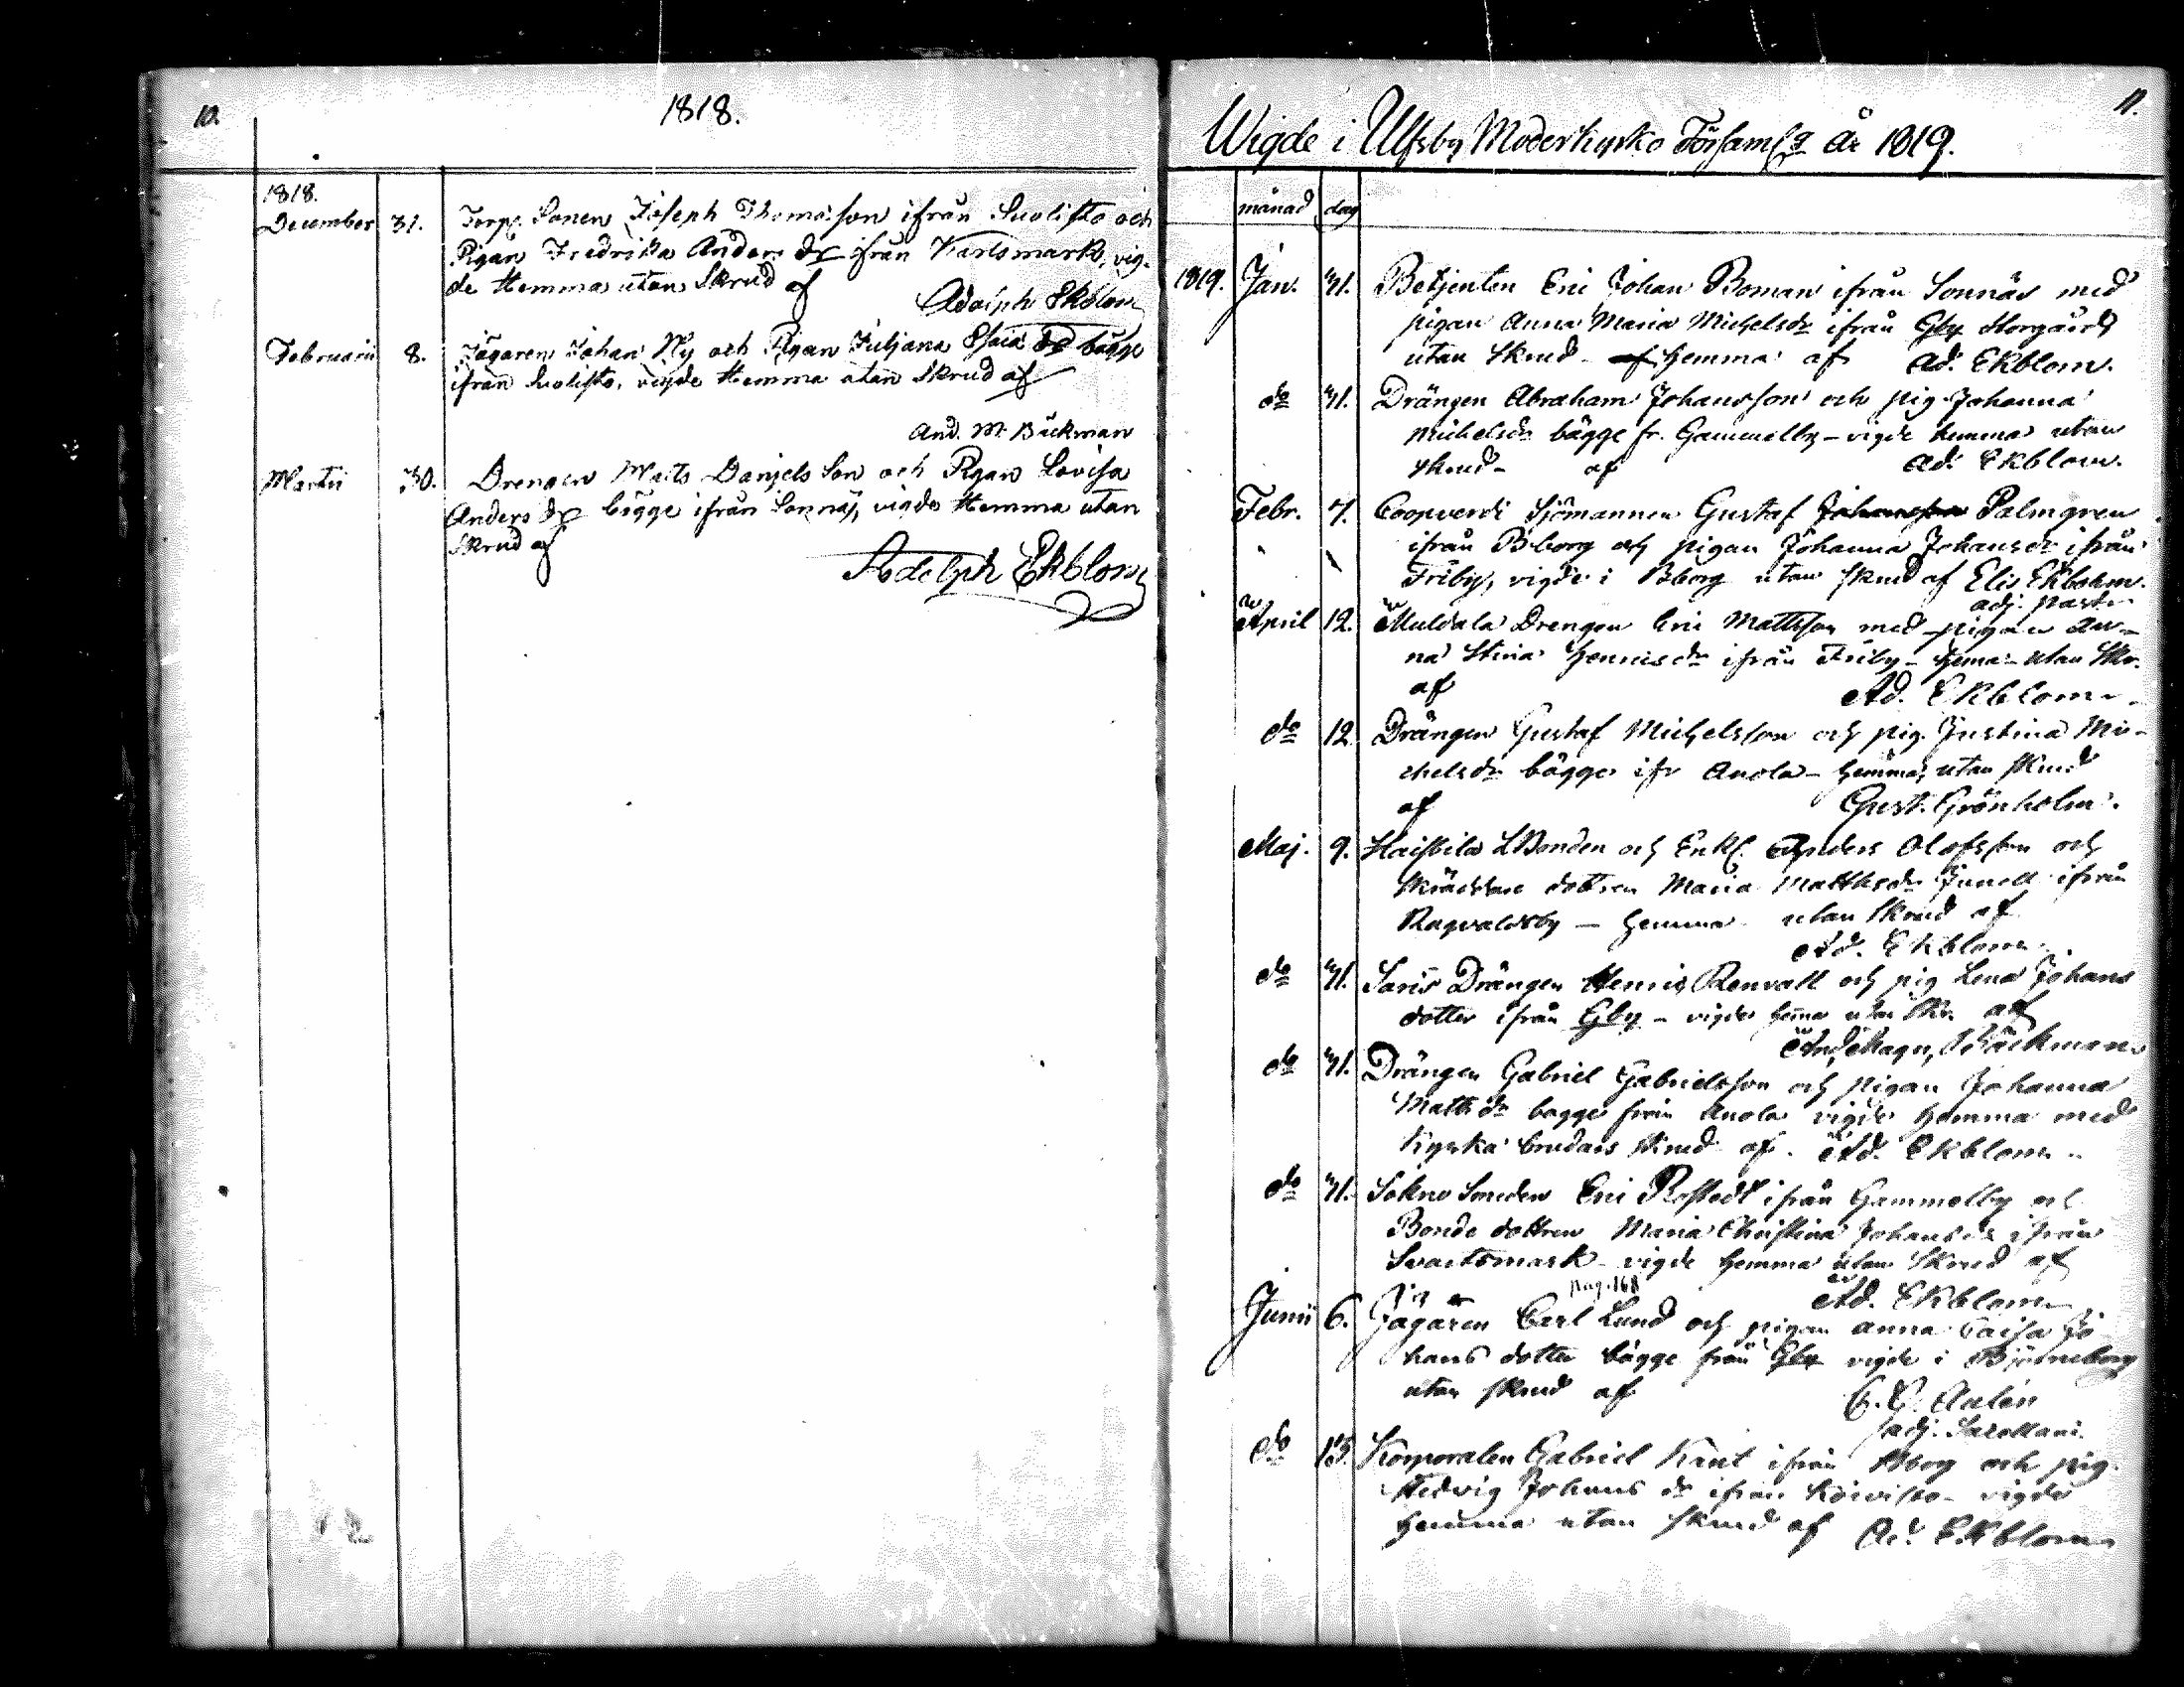 10.
1818.
1818.
December 31. Torp. Sonen Joseph Thomasson ifrån Suolisto och
Pigan Fredrika Anders dr ifrån Karlsmark, vig-
de Hemma utan Skrud af
Adolph Ekblom
Februarii 8. Jägaren Johan Ny och Pigan Juljana Esaia dr bägge
ifrån Suolisto, vigde Hemma utan Skrud af
And. M. Bäckman
Martii 30. Drengen Matts Danjels Son och Pigan Lovisa
Anders dr bägge ifrån Sonnäs, vigde Hemma utan
Skrud af
Adolph Ekblom
11.
Wigde i Ulfsby Moderkyrko Församlg år 1819.
månad dag
1819. Jan. 31. Betjenten Eric Johan Boman ifrån Sonnäs med
pigan Anna Maria Michelsdr ifrån Gby Storgård
utan Skrud - af hemma af Ad. Ekblom.
do 31. Drängen Abraham Johansson och pig. Johanna
Michelsdr bägge fr. Gammelby - vigde hemma utan
skrud - af Ad. Ekblom.
Febr. 7. Coopverdi Sjömannen Gustaf Johansson Palmgren
ifrån B.borg och pigan Johanna Johansdr ifrån
Friby, vigde i Bborg utan skrud af Elis Ekbohm.
adj. past.
April 12. Muldala Drengen Eric Mattsson med pigan An-
na Stina Henricsdr ifrån Friby - hema - utan Skr.
af Ad. Ekblom
do 12 Drängen Gustaf Michelsson och pig. Justina Mi-
chelsdr bägge ifr Anola - hemma, utan skrud
af Gust. Grönholm.
Maj. 9. Haistila LBonden och Enkl. Anders Olofsson och
Skräddare dottren Maria Matthsdr Junell ifrån
Ragvaldsby - hemma utan Skrud af
Ad. Ekblom
do 31. Drängen Henric Renvall och pig Lena Johans
dotter ifrån Gby - vigde hema utan Skr. af
And. Magn. Bäckman
do 31. Drängen Gabriel Gabrielsson och pigan Johanna
Matts dr bägge från Anola vigde hemma med
Kyrko brudars skrud af. Ad. Ekblom
do 31. Sokne Smeden Eric Rostedt ifrån Gammelby och
Bonde dottren Maria Christina Johansdr ifrån
Svartsmark - vigde hemma utan Skrud af
Ad. Ekblom
pag. 168
Junii 6. Jägaren Carl Lund och pigan Anna Caisa Jo
hans dotter bägge från Gby vigde i Björneborg
utan skrud af Aulén
adj.
do 13. Korporalen Gabriel Knut ifrån Bborg och pig.
Hedvig Johans dr ifrån Koivisto - vigde
hemma utan skrud af Ad. Ekblom